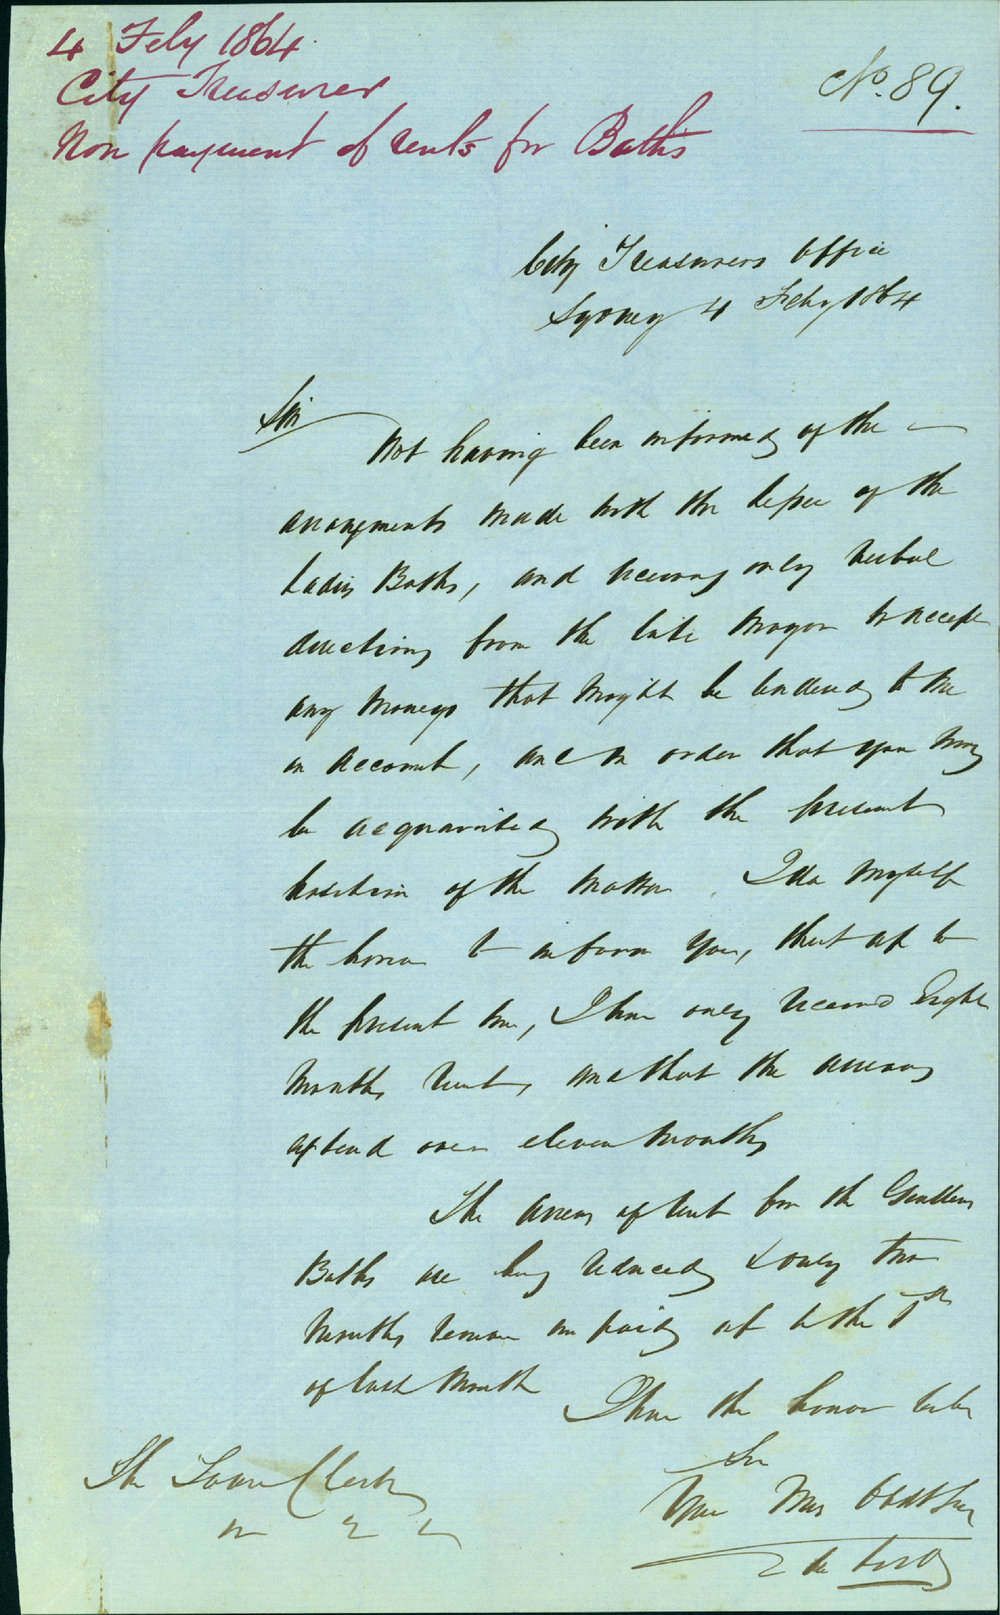 4 Feby 1864.
City Treasurer
Non payment of rents for Baths
No. 89.
City Treasurers Office
Sydney 4 Feby 1864
Sir
Not having been informed of the
arrangments made with the lessee of the
Ladies Baths, and receiving only verbal
directions from the late Mayor to accept
any moneys that might be tendered to me
on account, and in order that you may
be acquainted with the present
position of the matter. I do myself
the honor to inform you, that up to
the present time, I have only received Eight
Months rent, and that the arrears
extend over eleven Months
The arrears of rent for the Gentlemens
Baths are being reduced & only two
Months remain unpaid up to the
of last Month
I have the honor to be
Sir
Your Mos Obdt
The Town Clerk